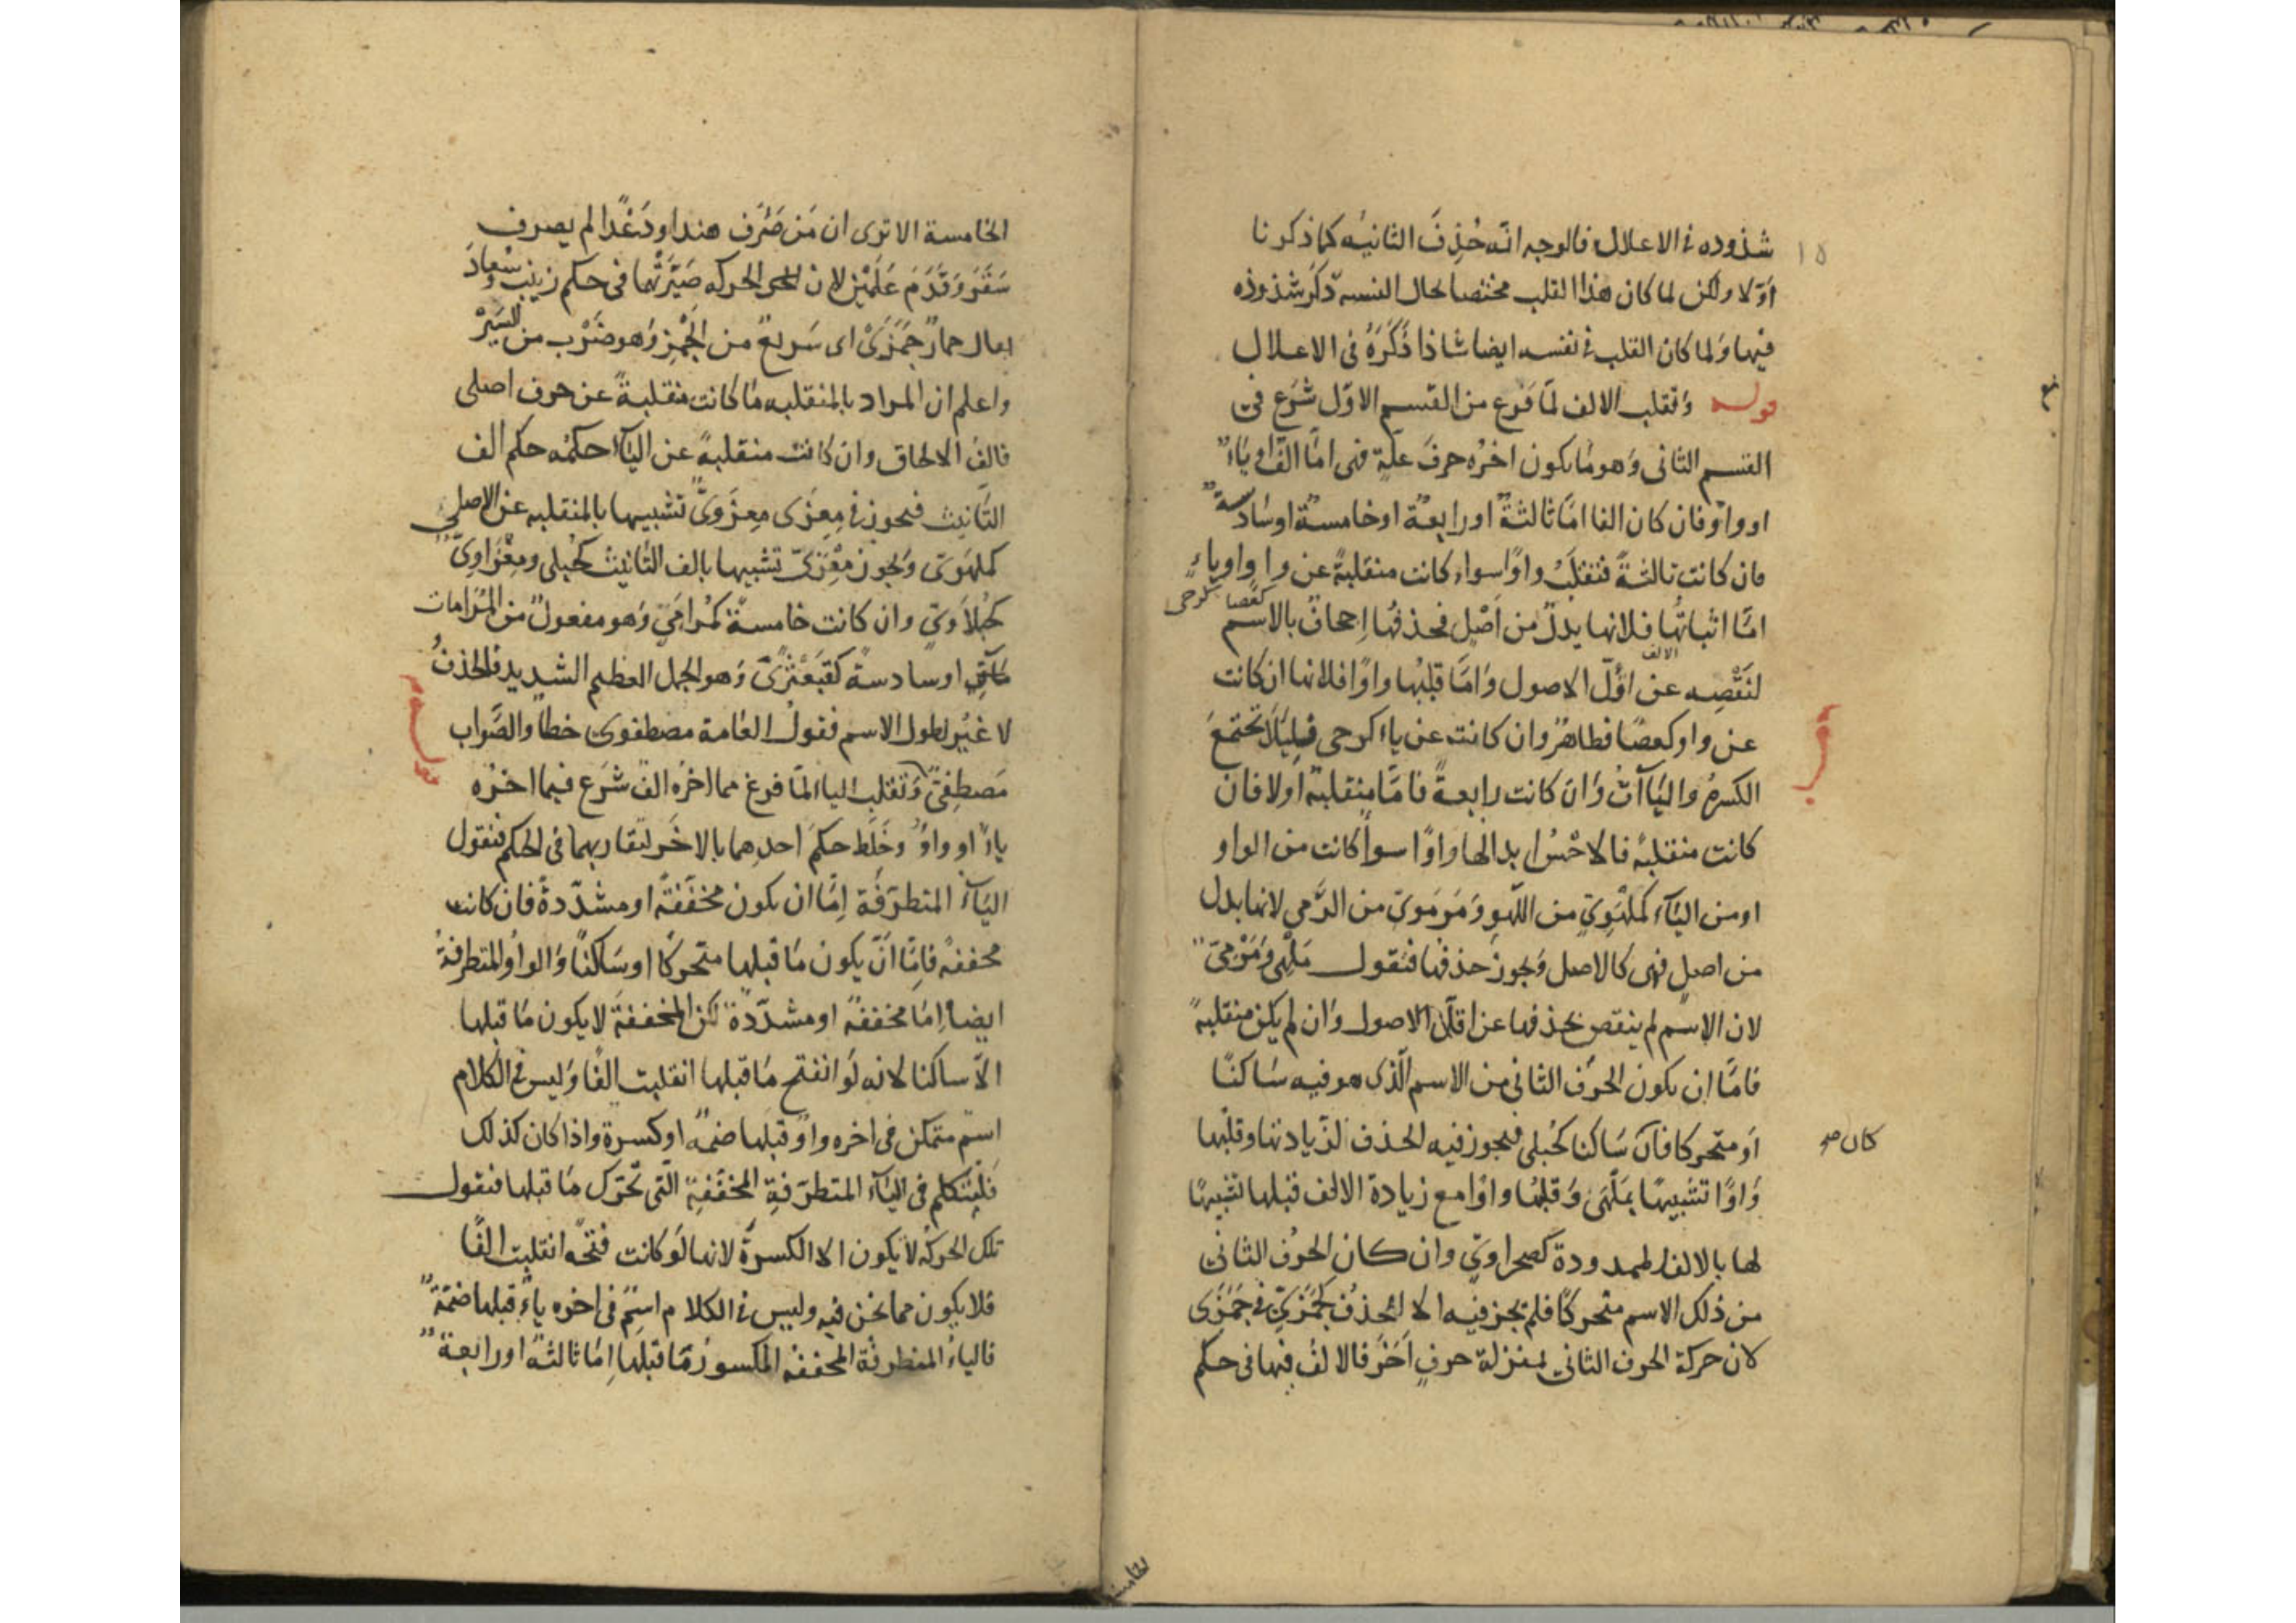 شذوذه في الاعلال فالوجه انه حُذِفَ الثانية كما ذكرنا
اوّلا ولكن لما كان هذا القلب مختصا بحال النسبة ذكر شذوذه
فيها وَلما كان القلب في نفسه ايضا شاذا ذَكَرَهُ في الاعلال
قوله وَتقلب الالف لمّا فرغ من القسم الاوّل شَرَع في
القسم الثاني وَهو مَا يكون اخرُه حرفَ علةٍ فهي امّا الفٌ او ياءٌ
او واوٌ فان كان الفا امّا ثالثةٌ او رابعةٌ او خامسةٌ او سَادسةٌ
فان كانت ثالثةً فتقلَبُ واوًا سواء كانت منقلبةً عن واو او ياءٍ
كعَصا كرحى
امّا اثباتُها فلانها بدلٌ من اَصْلٍ فحذفُها اِجحافٌ بالاسم
الالف
لنَقْصِه عن اقلّ الاصول وَامَّا قلبُها واوًا فلانها ان كانت
عن واو كعصًا فظاهرٌ وان كانت عن ياء كرحى فلِئلَّا تجتمعَ
الكسرةُ والياآتُ وَان كانت رابعةً فامَّا منقلبةٌ اولا فان
كانت منقلبةً فالاحْسَن ابدالها واوًا سواً كانت من الواو
او من اليَآء كملْهَوِيّ من اللّهو وَمَرمَويّ من الرَّمي لانها بدل
من اصلٍ فهي كالاصل وَيجوز حذفها فتقول مَلْهِيٌّ وَمَرْمِيٌّ
لان الاسم لم ينقص بحذفها عن اقلّ الاصول وَان لم يكن منقلبةً
فامَّا ان يكون الحرف الثاني من الاسم الّذي هو فيه سَاكنًا
اَو متحركا فان سَاكنا كحُبلى فيجوز فيه الحذف لزيادتها وقلبُها
كان صح
وَاوًا تشبيهًا بمَلْهَى وَقلبُها واوًا مع زيادة الالف قبلها تشبيهًا
لها بالالف الممدودة كصحراويّ وان كان الحرف الثاني
من ذلك الاسم متحركًا فلم يجز فيه الا الحذفُ كجَمَزِيّ في جَمَزَى
لان حركة الحرف الثاني بمنزلة حرفٍ اَخَرَ فالالفُ فيها في حكم
الخامسة الا ترى ان مَن صَرَف هندا ودَعْدًا لم يصرف
سَقَرَ وَقَدَمَ عَلَمَيْن لان الحركه صَيَّرَتْها في حكم زينب وسُعادَ
يقال حمارٌ جَمَزَىْ اى سَريعٌ من الجَمْزِ وَهو ضَرْب من السَّيْرْ
واعلم ان المراد بالمنقلبه مَا كانت منقلبةً عن حرف اصلى
فالفُ الالحاق وان كانت منقلبةً عن اليَآء حكمُه حكم الف
التّأنيث فيجوز في مِعزَى مِعزَوىٌّ تشبيها بالمنقلبه عن الاصلى
كملهَوىّ وَيجوز مِعْزِىّ تشبيها بالف التأنيث كحُبلى ومِعْزَاوِىّ
كحُبْلَاوىّ وان كانت خامسةً كمُرامَىً وَهو مفعولٌ من المُرَامات
او سادسةً كقَبَعْثَرىً وَهو الجمل العظيم الشديد فالحذفُ
لا غَيْر لطول الاسم فقولُ العامة مصطفوىّ خطأ والصَّواب
مُصطفِىّ وَتقلب اليا لمّا فرغ مما اخرُه الفٌ شَرَع فيما اخرُه
ياءٌ او واوٌ وخَلَط حكمَ احدهما بالاخَر لتقاربهما في الحكم فنقول
اليَآءُ المتطرّفَة اِمّا ان يكون مخففَةً او مشدّدةً فان كانت
مخففةً فاِمّا اَنْ يكون مَا قبلها متحركًا او سَاكنًا وَالواوُ المتطرفةُ
ايضا اِمّا مخففةً او مشدّدة لكن المخففةَ لا يكون مَا قبلها
الّا ساكنا لانه لَو انفتح مَا قبلها انقلبت الفًا وَليس في الكلام
اسمٌ متمكن في اخره واوٌ قبلها ضمةً او كسرة واذا كان كذلك
فَلْيُتَكلم في اليَآء المتطرّفةِ المخففةِ الّتي تحرّك مَا قبلها فنقول
تلك الحركة لا يكون الا الكسرةَ لانها لَو كانت فتحةً انقلبت الفًا
فلا يكون مما نحن فيه وليس في الكلام اسمٌ في اخره ياءٌ قبلها ضمّةٌ
فالياءُ المتطرفة المخففه المكسورُ مَا قبلها اِمّا ثالثةً او رابعةً